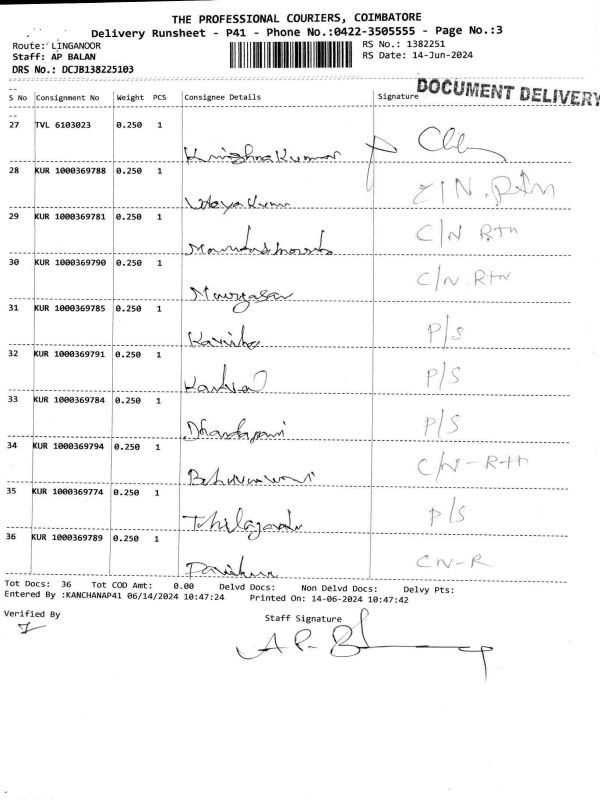 THE PROFESSIONAL COURIERS, COIMBATORE
Delivery Runsheet - P41 - Phone No.:0422-3505555 - Page No.:3
Route: LINGANOOR
RS No.: 1382251
Staff: AP BALAN
RS Date: 14-Jun-2024
DRS No.: DCJB138225103
DOCUMENT DELIVERY
S No Consignment No Weight PCS Consignee Details Signature
27 TVL 6103023 0.250 1
Krishnakumar
28 KUR 1000369788 0.250 1
Udayakumar
29 KUR 1000369781 0.250 1
C/N Rtn
30 KUR 1000369790 0.250 1
C/N Rtn
31 KUR 1000369785 0.250 1
Kavitha P/S
32 KUR 1000369791 0.250 1
P/S
33 KUR 1000369784 0.250 1
Dhandapani P/S
34 KUR 1000369794 0.250 1
C/N-Rtn
35 KUR 1000369774 0.250 1
P/S
36 KUR 1000369789 0.250 1
CN-R
Tot Docs: 36 Tot COD Amt: 0.00 Delvd Docs: Non Delvd Docs: Delvy Pts:
Entered By :KANCHANAP41 06/14/2024 10:47:24 Printed On: 14-06-2024 10:47:42
Verified By
Staff Signature